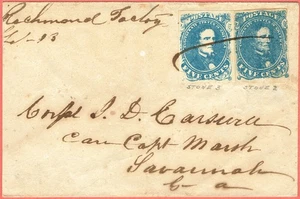 Richmond Factory
POSTAGE POSTAGE
FIVE CENTS FIVE CENTS
STONE 3 STONE 2
Corpl J. D. Carswell
Care Capt Marsh
Savannah
Ga